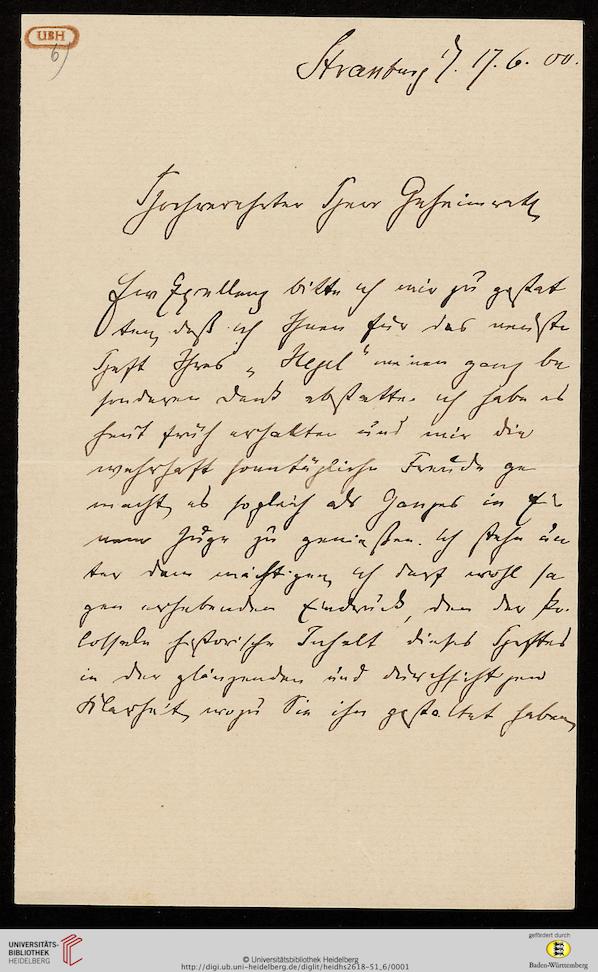 UBH
6)
Strassburg i/E. 17. 6. 00.
Hochverehrter Herr Geheimrath,
Ew Excellenz bitte ich mir zu gestat
ten, daß ich Ihnen für das neueste
Heft Ihres „Hegel“ meinen ganz be
sonderen Dank abstatte. Ich habe es
heut früh erhalten und mir die
wahrhaft sonntägliche Freude ge
macht, es sogleich als Ganzes in Ei
nem Zuge zu genießen. Ich stehe un
ter dem mächtigen, ich darf wohl sa
gen erhebenden Eindruck, den der ko
lossale historische Inhalt dieses Heftes
in der glänzenden und durchsichtigen
Klarheit, wozu Sie ihn gestaltet haben,
UNIVERSITÄTS-
BIBLIOTHEK
HEIDELBERG
© Universitätsbibliothek Heidelberg
http://digi.ub.uni-heidelberg.de/diglit/heidhs2618-51_6/0001
gefördert durch
Baden-Württemberg